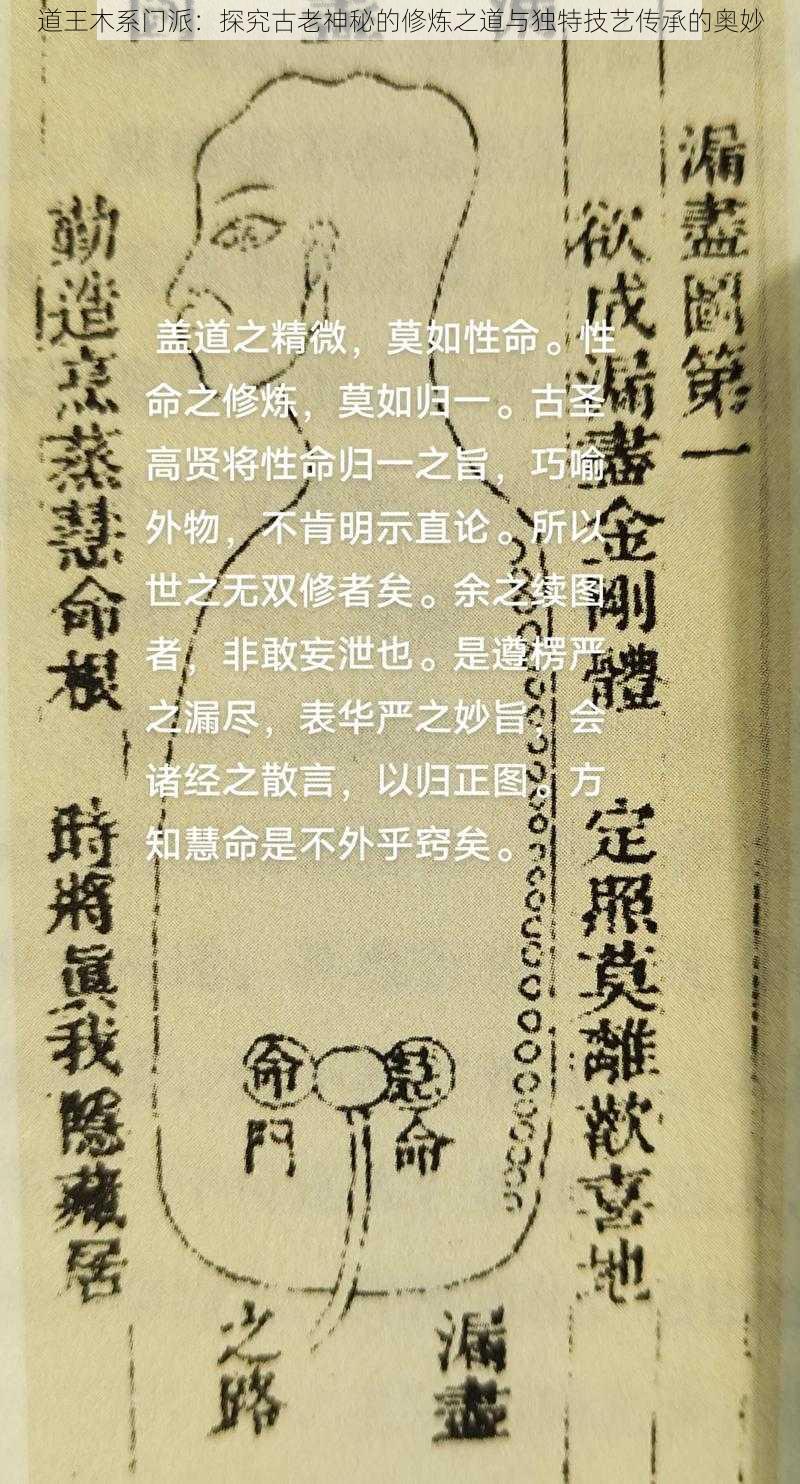 道王木系门派：探究古老神秘的修炼之道与独特技艺传承的奥妙
漏盡圖第一
欲成漏盡金剛體
定照莫離歡喜地
勤造烹蒸慧命根
時將眞我隱藏居
盖道之精微，莫如性命。性
命之修炼，莫如归一。古圣
高贤将性命归一之旨，巧喻
外物，不肯明示直论。所以
世之无双修者矣。余之续图
者，非敢妄泄也。是遵楞严
之漏尽，表华严之妙旨，会
诸经之散言，以归正图。方
知慧命是不外乎窍矣。
命門
慧命
漏盡
之路